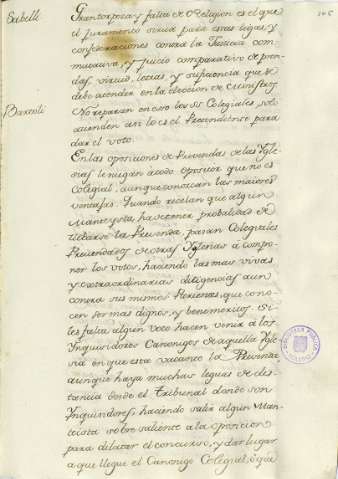 Sabelli
Gran torpeza y falta de Religion es el que
el juramento sirva para esas ligas, y
confederaciones contra la Justicia con-
mutativa, y Juicio comparativo de pren-
das, virtud, letras y suficiencia que se
debe atender en la eleccion de Ministros
Barzoli
No reparan en eso los SS Colegiales, solo
atienden an lo es el Pretendiente para
dar el voto.
En las oposiciones de Prevendas de las Ygle-
sias le niegan a todo opositor que no es
Colegial, aunque conozcan las maiores
ventajas. Quando recelan que algun
Manteysta, hace tener probabilidad de
la Prevenda, pasan Colegiales
Prevendados de otras Yglesias á compo-
ner los votos, haciendo las mas vivas
y extraordinarias diligencias aun
contra sus mismos Parientes, que cono-
cen ser mas dignos, y benemeritos. Si
les falta algun voto hacen venir a los
Ynquisidores Canonigos de aquella Ygle-
sia en que está vacante la Prevenda
aunque haya muchas leguas de dis-
tancia desde el tribunal donde son
Ynquisidores, haciendo salir algun Man-
teista sobresaliente a la oposicion
para dilatar el concurso, y dar lugar
a que llegue el Canonigo Colegial, ó